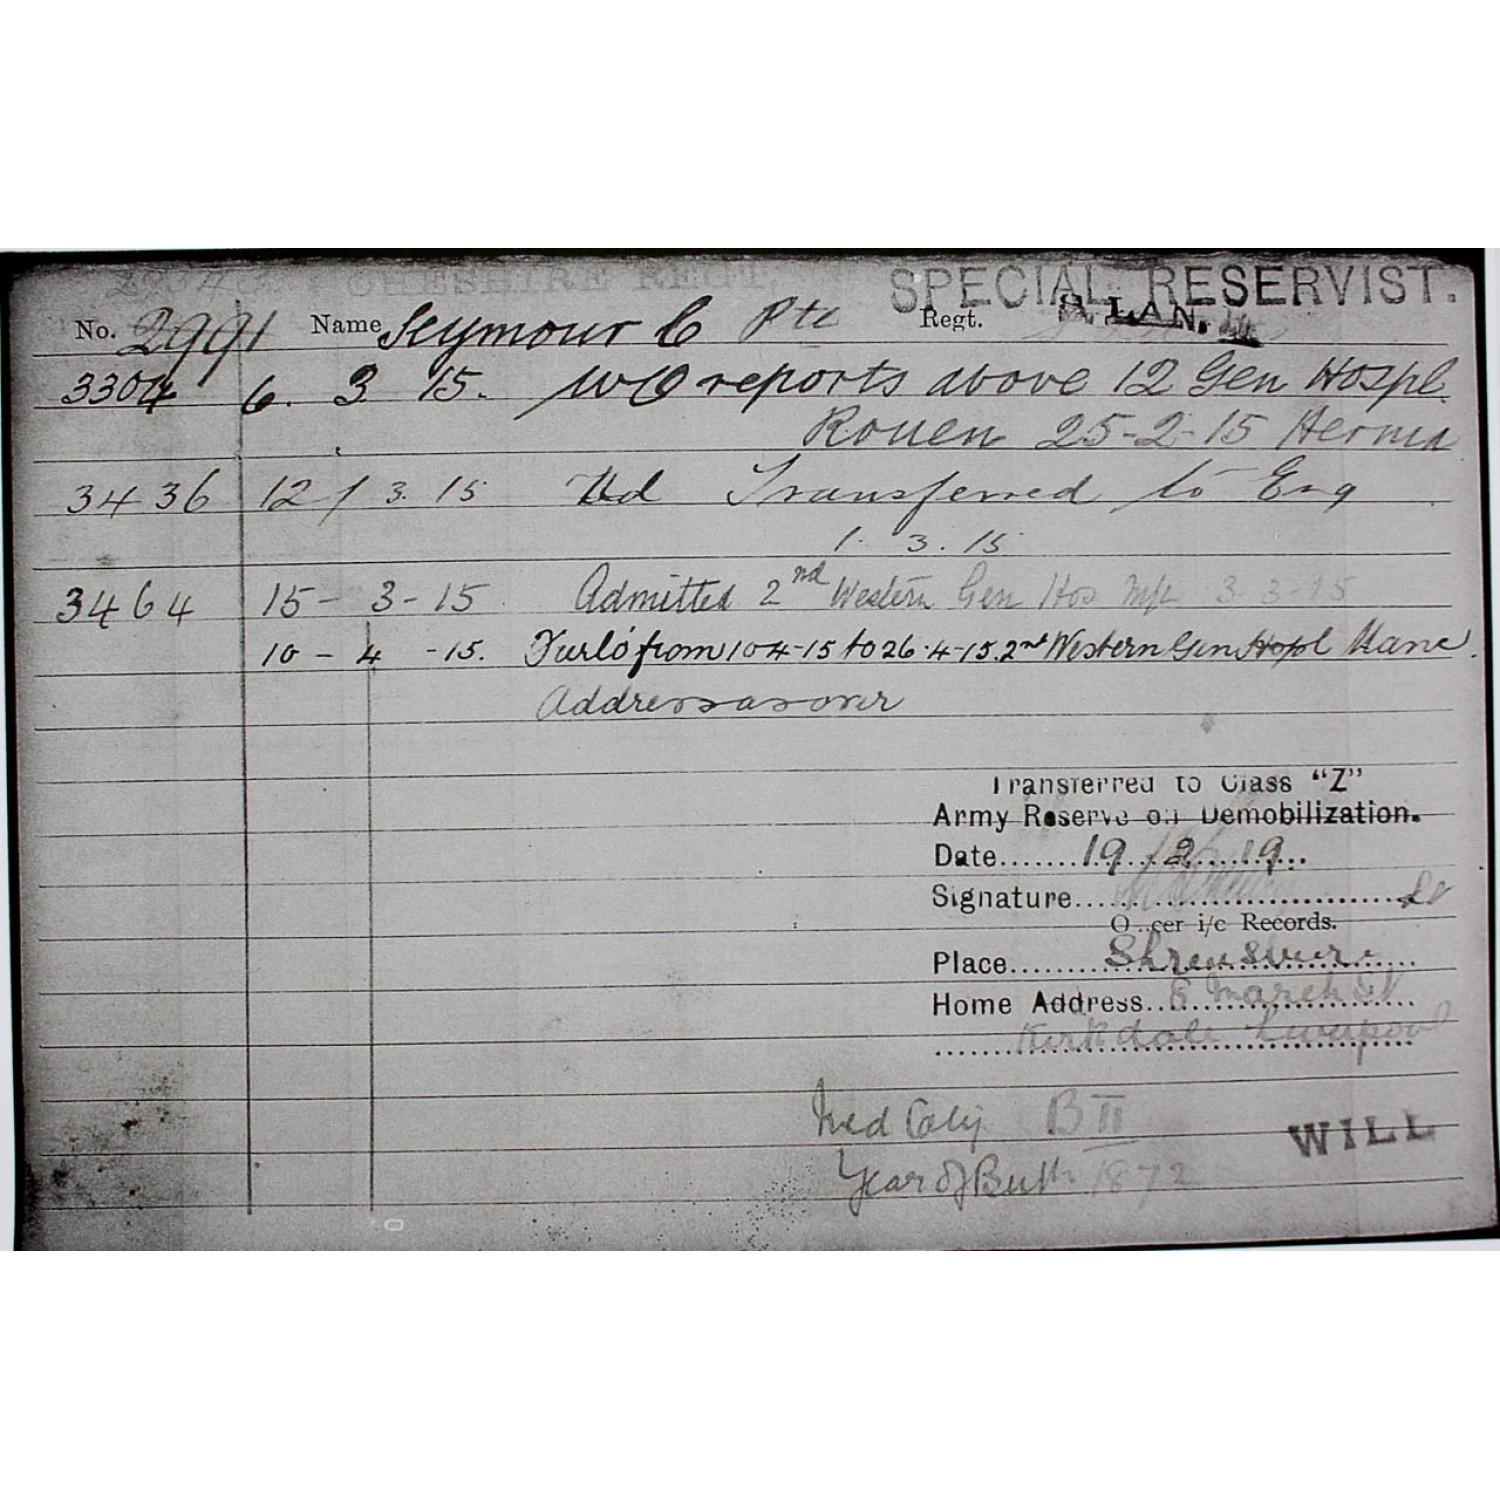 CHESHIRE REGT. SPECIAL RESERVIST.
No. 2991 Name Seymour C Pte Regt. S. LAN.
3304 6. 3 15. WO reports above 12 Gen Hospl
Rouen 25-2-15 Hernia
3436 12/3.15 Transferred to Eng
1. 3. 15
3464 15-3-15 Admitted 2nd Western Gen Hos 3-3-15
10-4-15. Furlo from 10 4-15 to 26.4-15. 2nd Western Gen Hospl
Address as over
Transferred to Class "Z"
Army Reserve on Demobilization.
Date.......19..2..19...
Signature....
O cer i/c Records.
Place.......Shrewsbury
Home Address.. March St
Kirkdale Liverpool
Med Catg B II
Year of Birth 1872
WILL